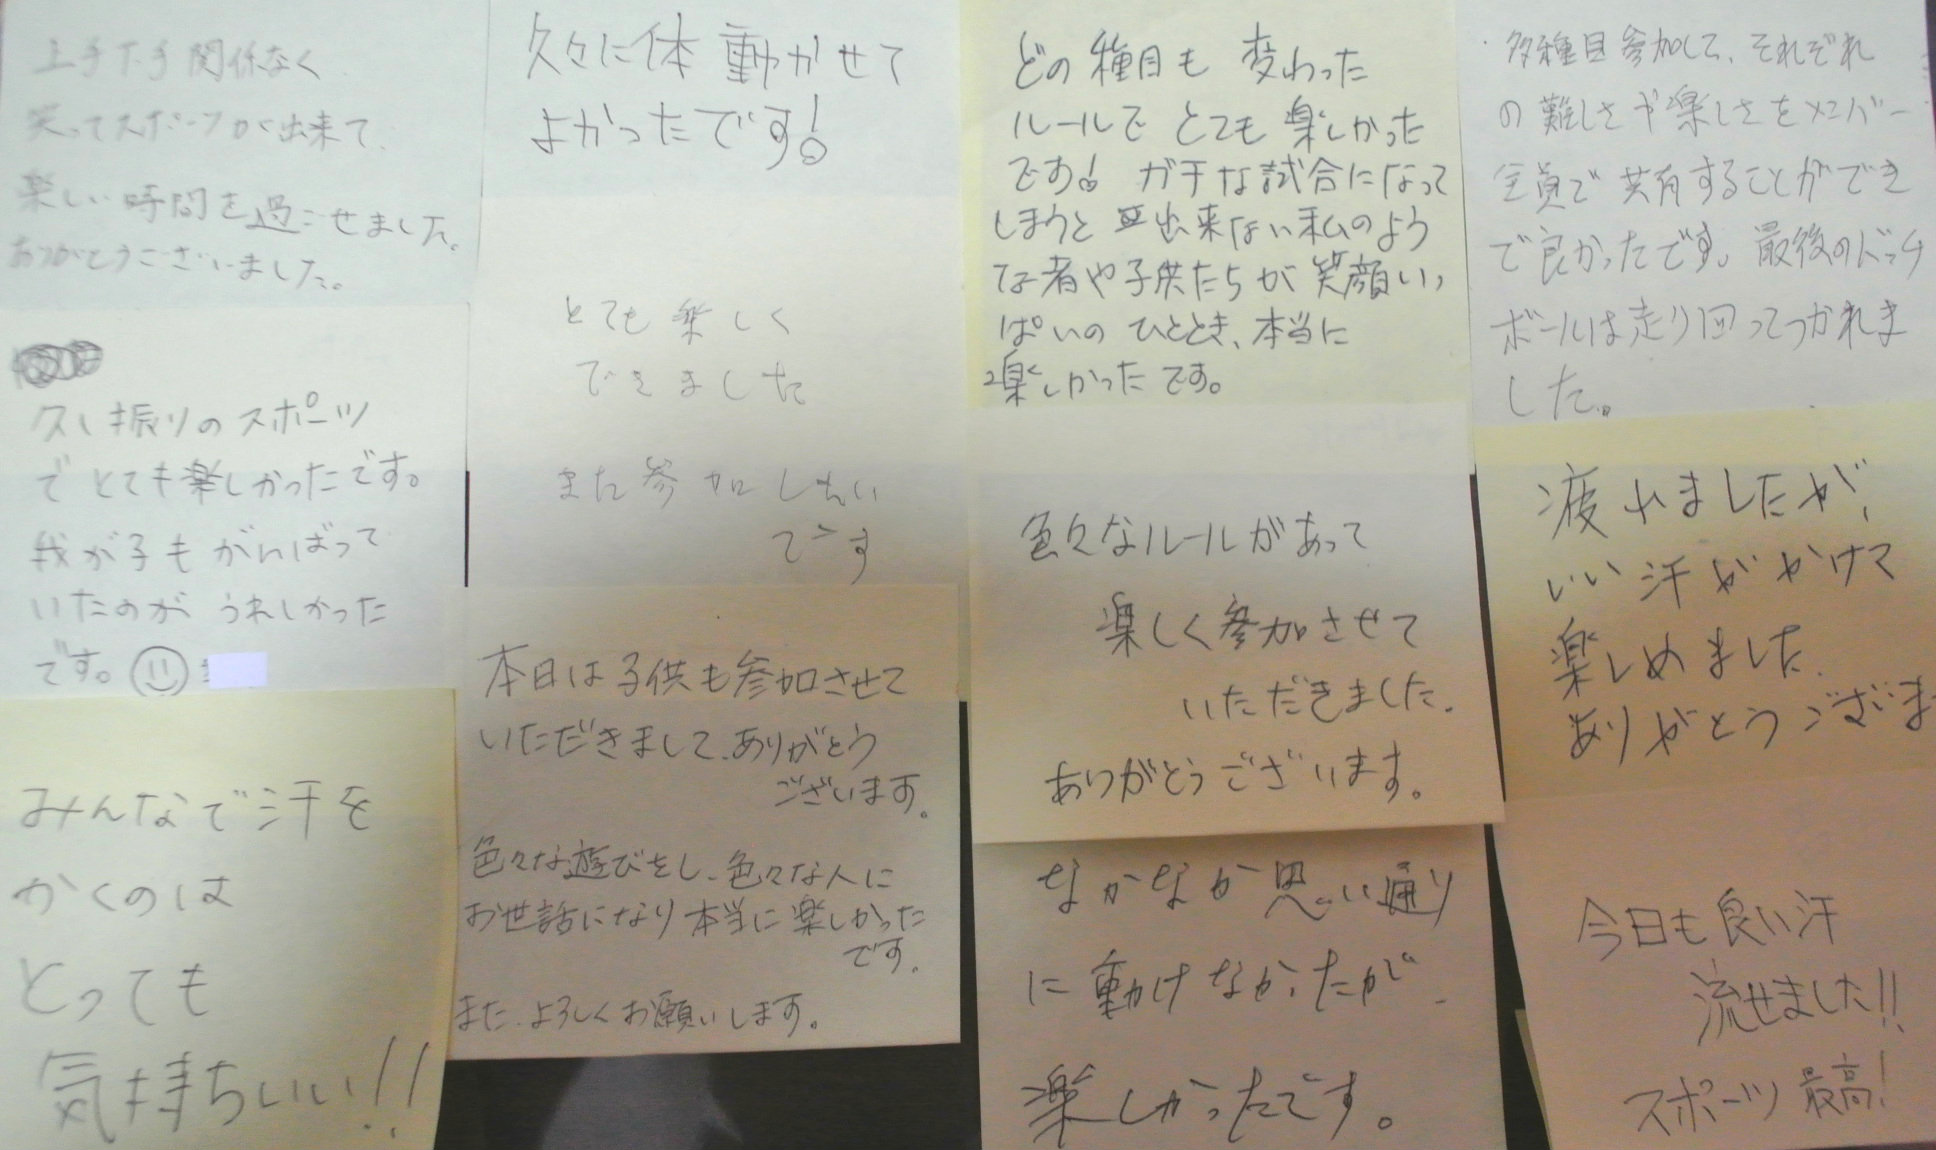 上手下手関係なく
笑ってスポーツが出来て、
楽しい時間を過ごせました。
ありがとうございました。
久し振りのスポーツ
でとても楽しかったです。
我が子もがんばって
いたのがうれしかった
です。
みんなで汗を
かくのは
とっても
気持ちいい!!
久々に体動かせて
よかったです!
とても楽しく
できました
また参加したい
です
本日は子供も参加させて
いただきまして、ありがとう
ございます。
色々な遊びをし、色々な人に
お世話になり本当に楽しかった
です。
また、よろしくお願いします。
どの種目も変わった
ルールでとても楽しかった
です! ガチな試合になって
しまうと出来ない私のよう
な者や子供たちが笑顔いっ
ぱいのひととき、本当に
楽しかったです。
色々なルールがあって
楽しく参加させて
いただきました。
ありがとうございます。
なかなか思い通り
に動けなかったが、
楽しかったです。
多種目参加して、それぞれ
の難しさや楽しさをメンバー
全員で共有することができ
て良かったです。最後のドッチ
ボールは走り回ってつかれま
した。
疲れましたが、
いい汗がかけて
楽しめました。
ありがとうございま
今日も良い汗
流せました!!
スポーツ最高!